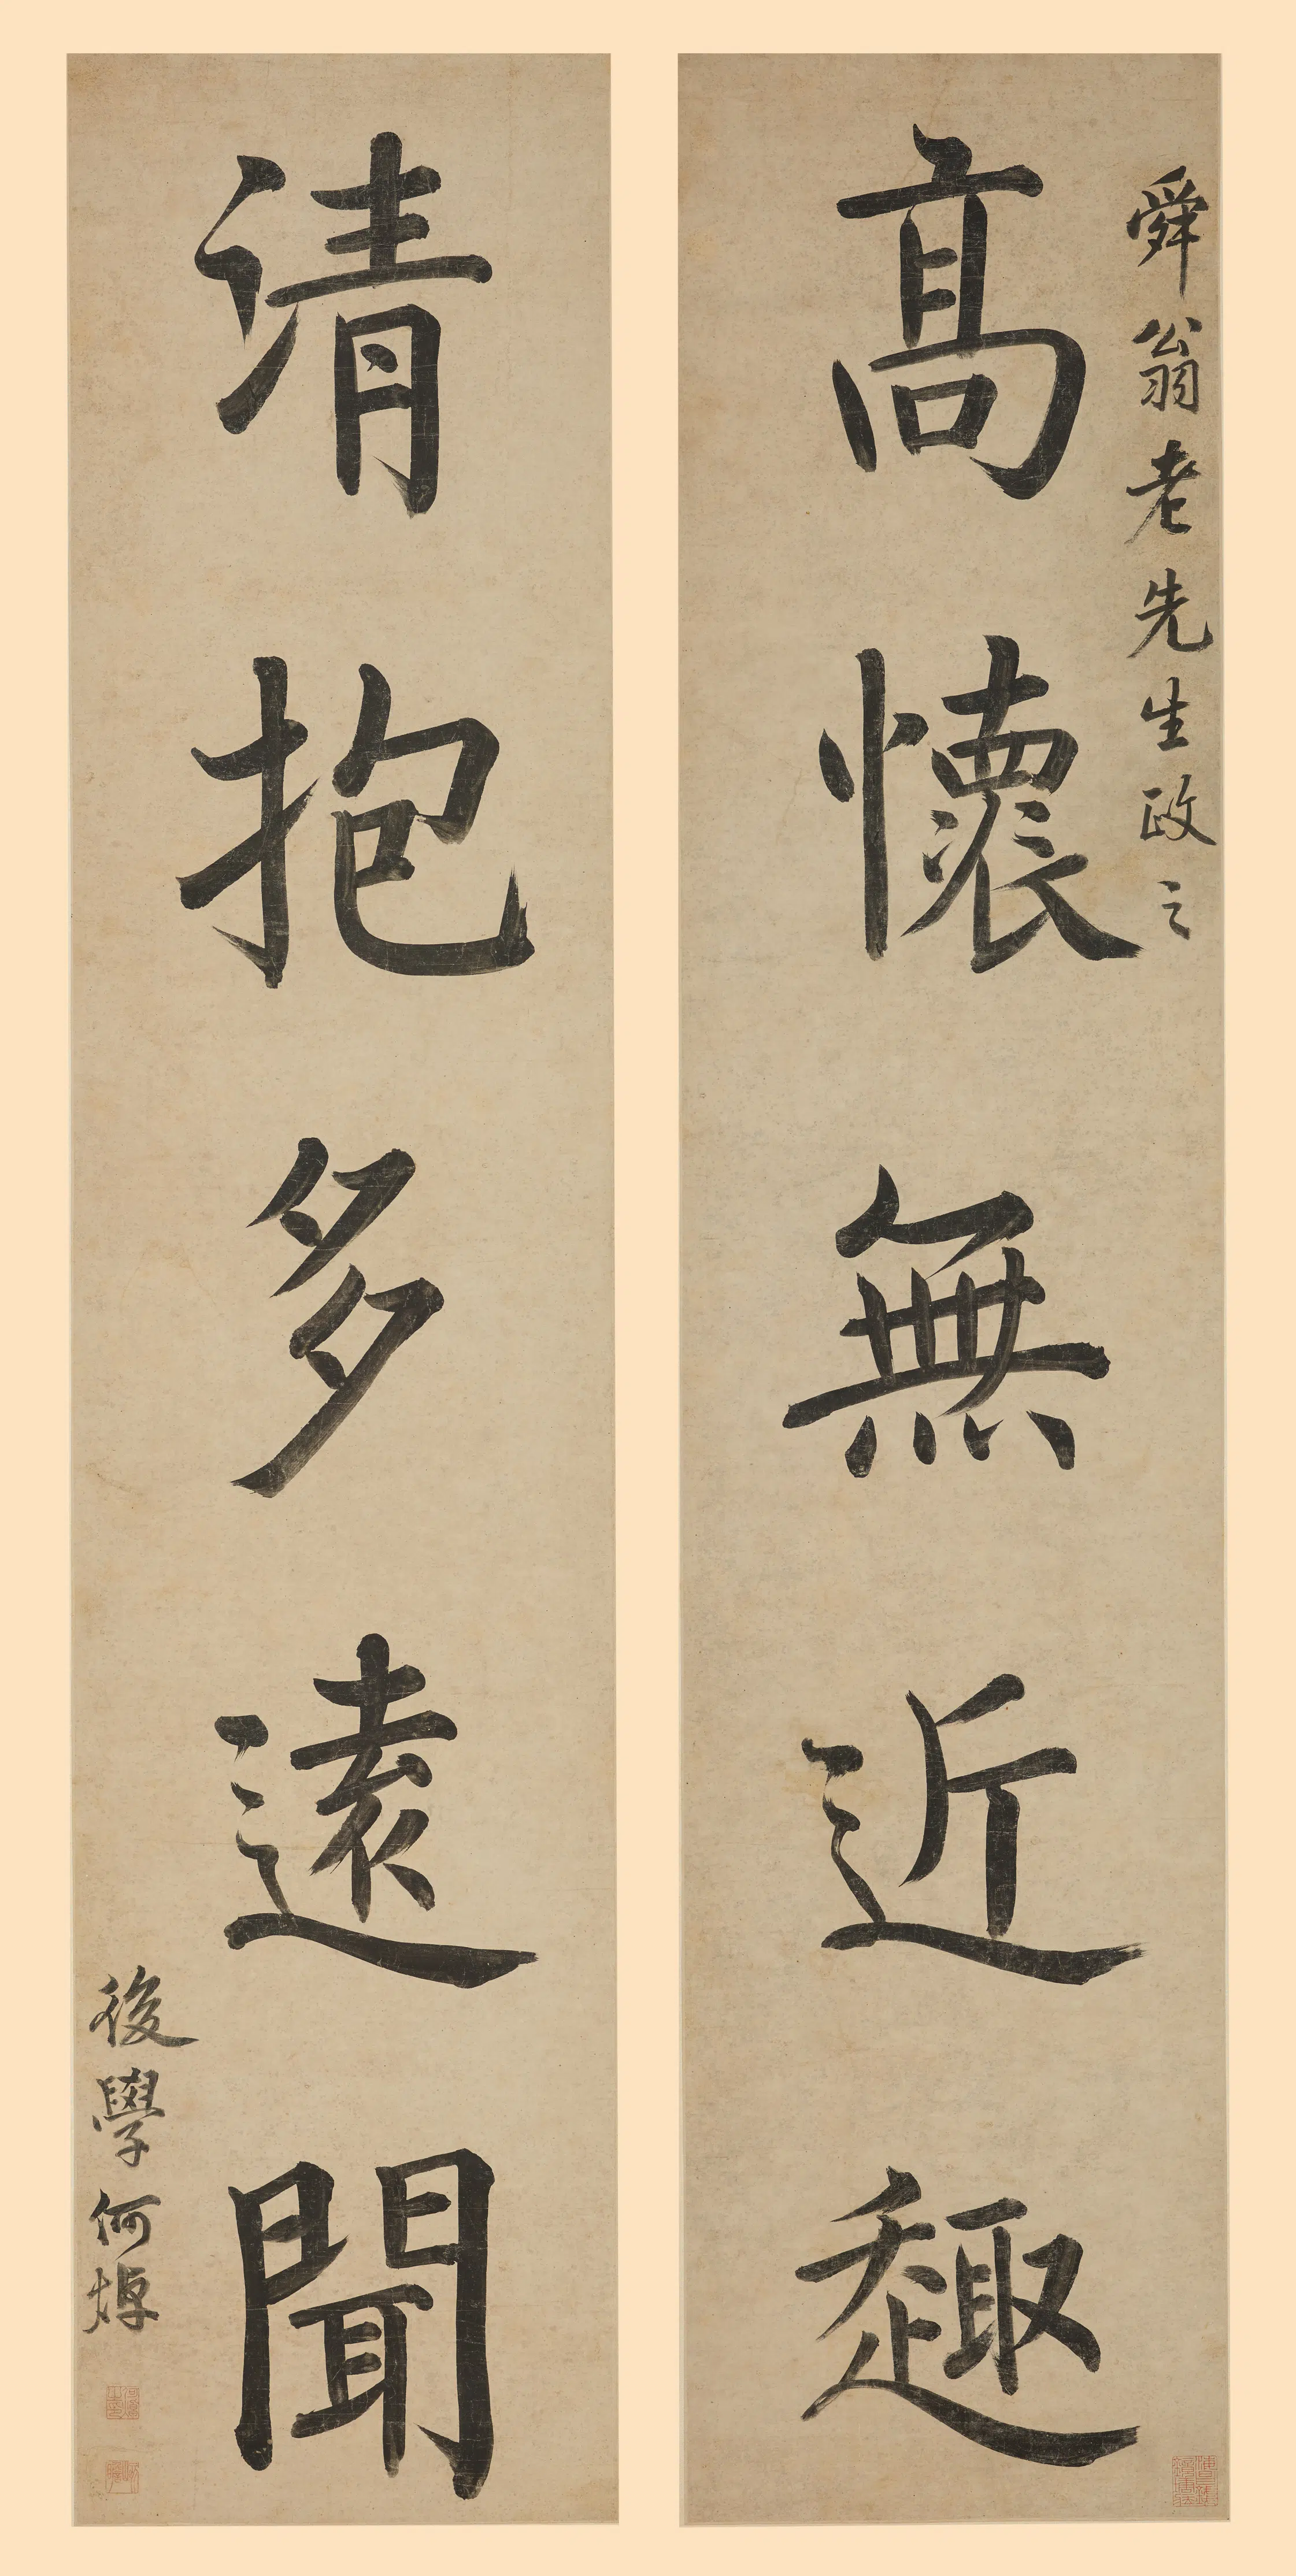 舜翁老先生政之
高懷無近趣
清抱多遠聞
後學何焯